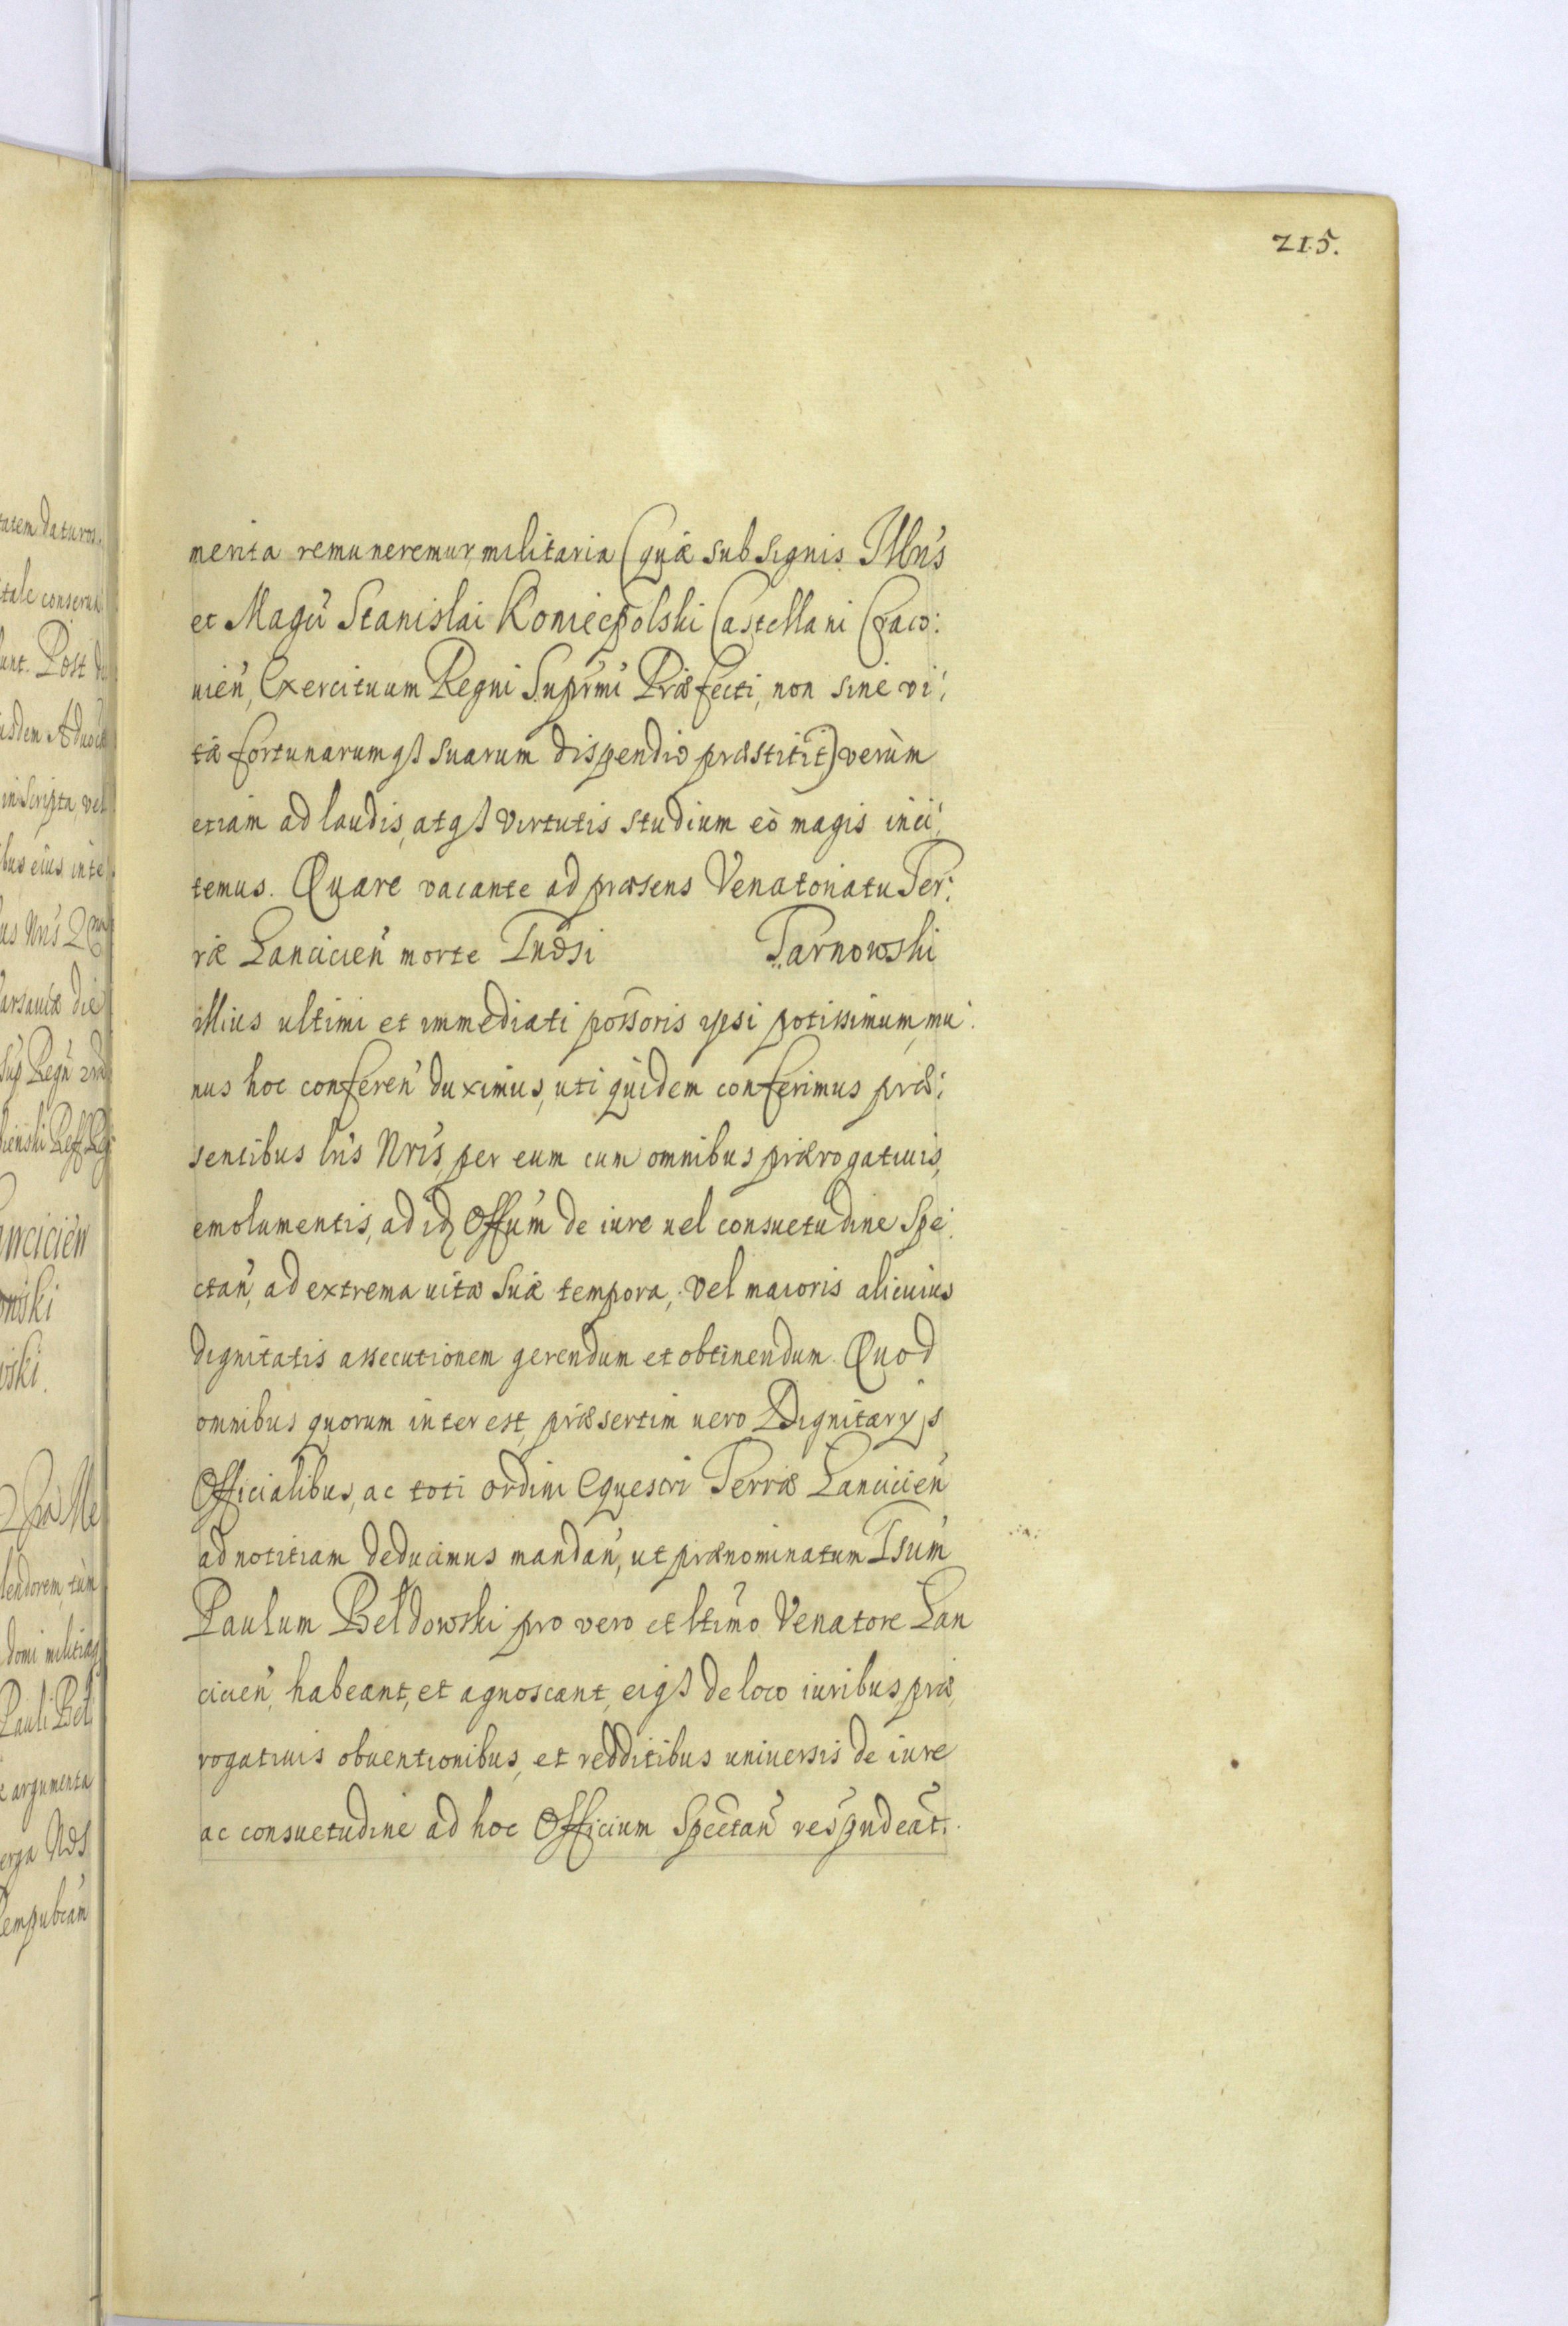 215.
merita remuneremur, militaria (quæ sub signis Illris
et Magci Stanislai Koniecpolski Castellani Craco:
uien, Exercituum Regni Supremi Præfecti, non sine vi:
tæ fortunarumqꝫ suarum dispendio præstitit) verùm
etiam ad laudis, atqꝫ virtutis studium eò magis inci:
temus. Quare vacante ad præsens Venatoriatu Ter:
ræ Lancicien morte Gnosi Tarnowski
illius ultimi et immediati possoris ipsi potissimum, mu:
nus hoc conferen duximus, uti quidem conferimus præ:
sentibus lris Nris, per eum cum omnibus prærogatiuis,
emolumentis, ad idꝫ Offum de iure uel consuetudine spe:
ctan, ad extrema uitæ suæ tempora, vel maioris alicuius
dignitatis assecutionem gerendum et obtinendum. Quod
omnibus quorum interest, præsertim uero Dignitarijs
Officialibus, ac toti ordini Equestri Terræ Lancicien
ad notitiam deducimus mandan, ut prænominatum Gsum
Paulum Bełdowski pro vero et ltimo Venatore Lan
cicien, habeant, et agnoscant, eiqꝫ de loco iuribus, præ,
rogatiuis obuentionibus, et redditibus uniuersis de iure
ac consuetudine ad hoc Officium spectan respndeat.
tatem daturos.
unt. Post
inscripta, vel
bus eius inte
ancicien
owski
wski.
lendorem, tùm
domi militiæqꝫ
Pauli Beł
argumenta
erga Nos
Rempublcam